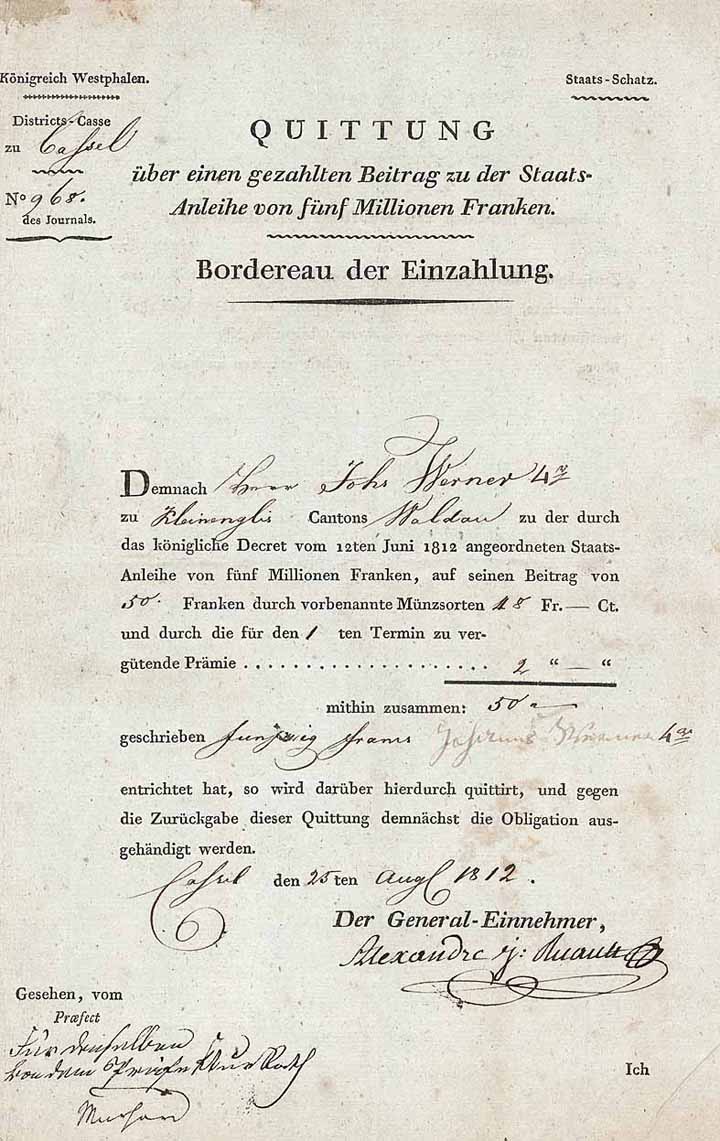 Königreich Westphalen.
Staats-Schatz.
Districts-Casse
zu Cassel
No 968.
des Journals.
QUITTUNG
über einen gezahlten Beitrag zu der Staats-
Anleihe von fünf Millionen Franken.
Bordereau der Einzahlung.
Demnach Herr Johs Werner 4r
zu Kleinenglis Cantons Waldau zu der durch
das königliche Decret vom 12ten Juni 1812 angeordneten Staats-
Anleihe von fünf Millionen Franken, auf seinen Beitrag von
50. Franken durch vorbenannte Münzsorten 48 Fr. — Ct.
und durch die für den 1 ten Termin zu ver-
gütende Prämie . . . . . . . . . . . . . . . . . . . . . 2 “ — “
mithin zusammen: 50 „ —
geschrieben funfzig Johannes Werner
entrichtet hat, so wird darüber hierdurch quittirt, und gegen
die Zurückgabe dieser Quittung demnächst die Obligation aus-
gehändigt werden.
Cassel den 25ten Aug 1812.
Der General-Einnehmer,
Alexandre
Gesehen, vom
Præfect
Für denselben
von dem Präfektur Rath
Murhard
Ich